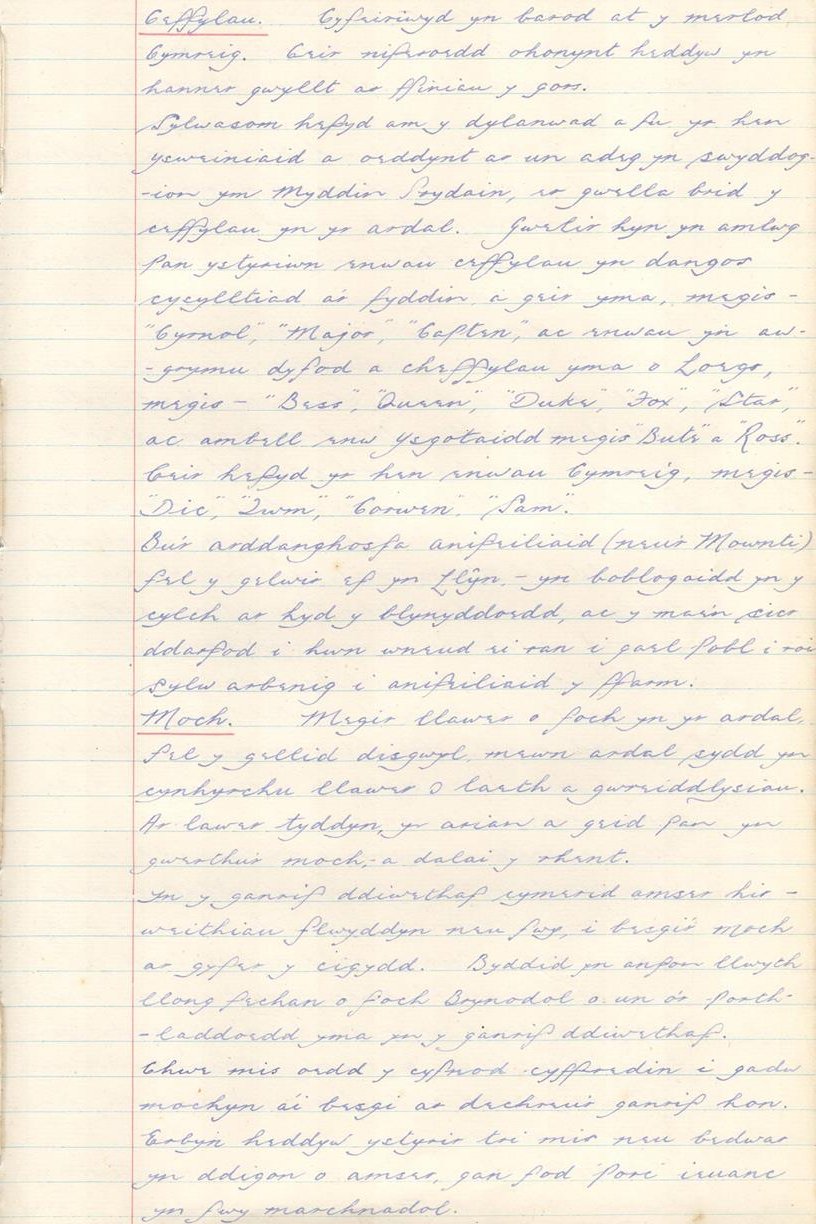 Ceffylau. Cyfeiriwyd yn barod at y merlod
Cymreig. Ceir niferoedd ohonynt heddyw yn
hanner gwyllt ar ffiniau y gors.
Sylwasom hefyd am y dylanwad a fu yr hen
ysweiniaid a oeddynt ar un adeg yn swyddog-
-ion ym Myddin Prydain, er gwella brid y
ceffylau yn yr ardal. Gwelir hyn yn amlwg
pan ystyriwn enwau ceffylau yn dangos
cycylltiad a'r fyddin a geir yma, megis -
"Cyrnol", "Major", "Capten", ac enwau yn aw-
-grymu dyfod a cheffylau yma o Loegr,
megis - "Bess", "Queen", "Duke", "Fox", "Star",
ac ambell enw Ysgotaidd megis "Bute" a "Ross".
Ceir hefyd yr hen enwau Cymreig, megis -
"Dic", "Twm", "Corwen", "Sam".
Bu'r arddanghosfa anifeiliaid (neu'r Mownti)
fel y gelwir ef yn Llŷn, - yn boblogaidd yn y
cylch ar hyd y blynyddoedd, ac y mae'n sicr
ddarfod i hwn wneud ei ran i gael pobl i roi
sylw arbenig i anifeiliaid y ffarm.
Moch. Megir llawer o foch yn yr ardal,
fel y gellid disgwyl mewn ardal sydd yn
cynhyrchu llawer o laeth a gwreiddlysiau.
Ar lawer tyddyn, yr arian a geid pan yn
gwerthu'r moch,- a dalai y rhent.
Yn y ganrif ddiwethaf cymerid amser hir -
weithiau flwyddyn neu fwy, i besgi'r moch
ar gyfer y cigydd. Byddid yn anfon llwyth
llong fechan o foch Brynodol o un o'r porth-
-laddoedd yma yn y ganrif ddiwethaf.
Chwe mis oedd y cyfnod cyffredin i gadw
mochyn a'i besgi ar dechreu'r ganrif hon.
Erbyn heddyw ystyrir tri mis neu bedwar
yn ddigon o amser, gan fod 'porc' ieuanc
yn fwy marchnadol.